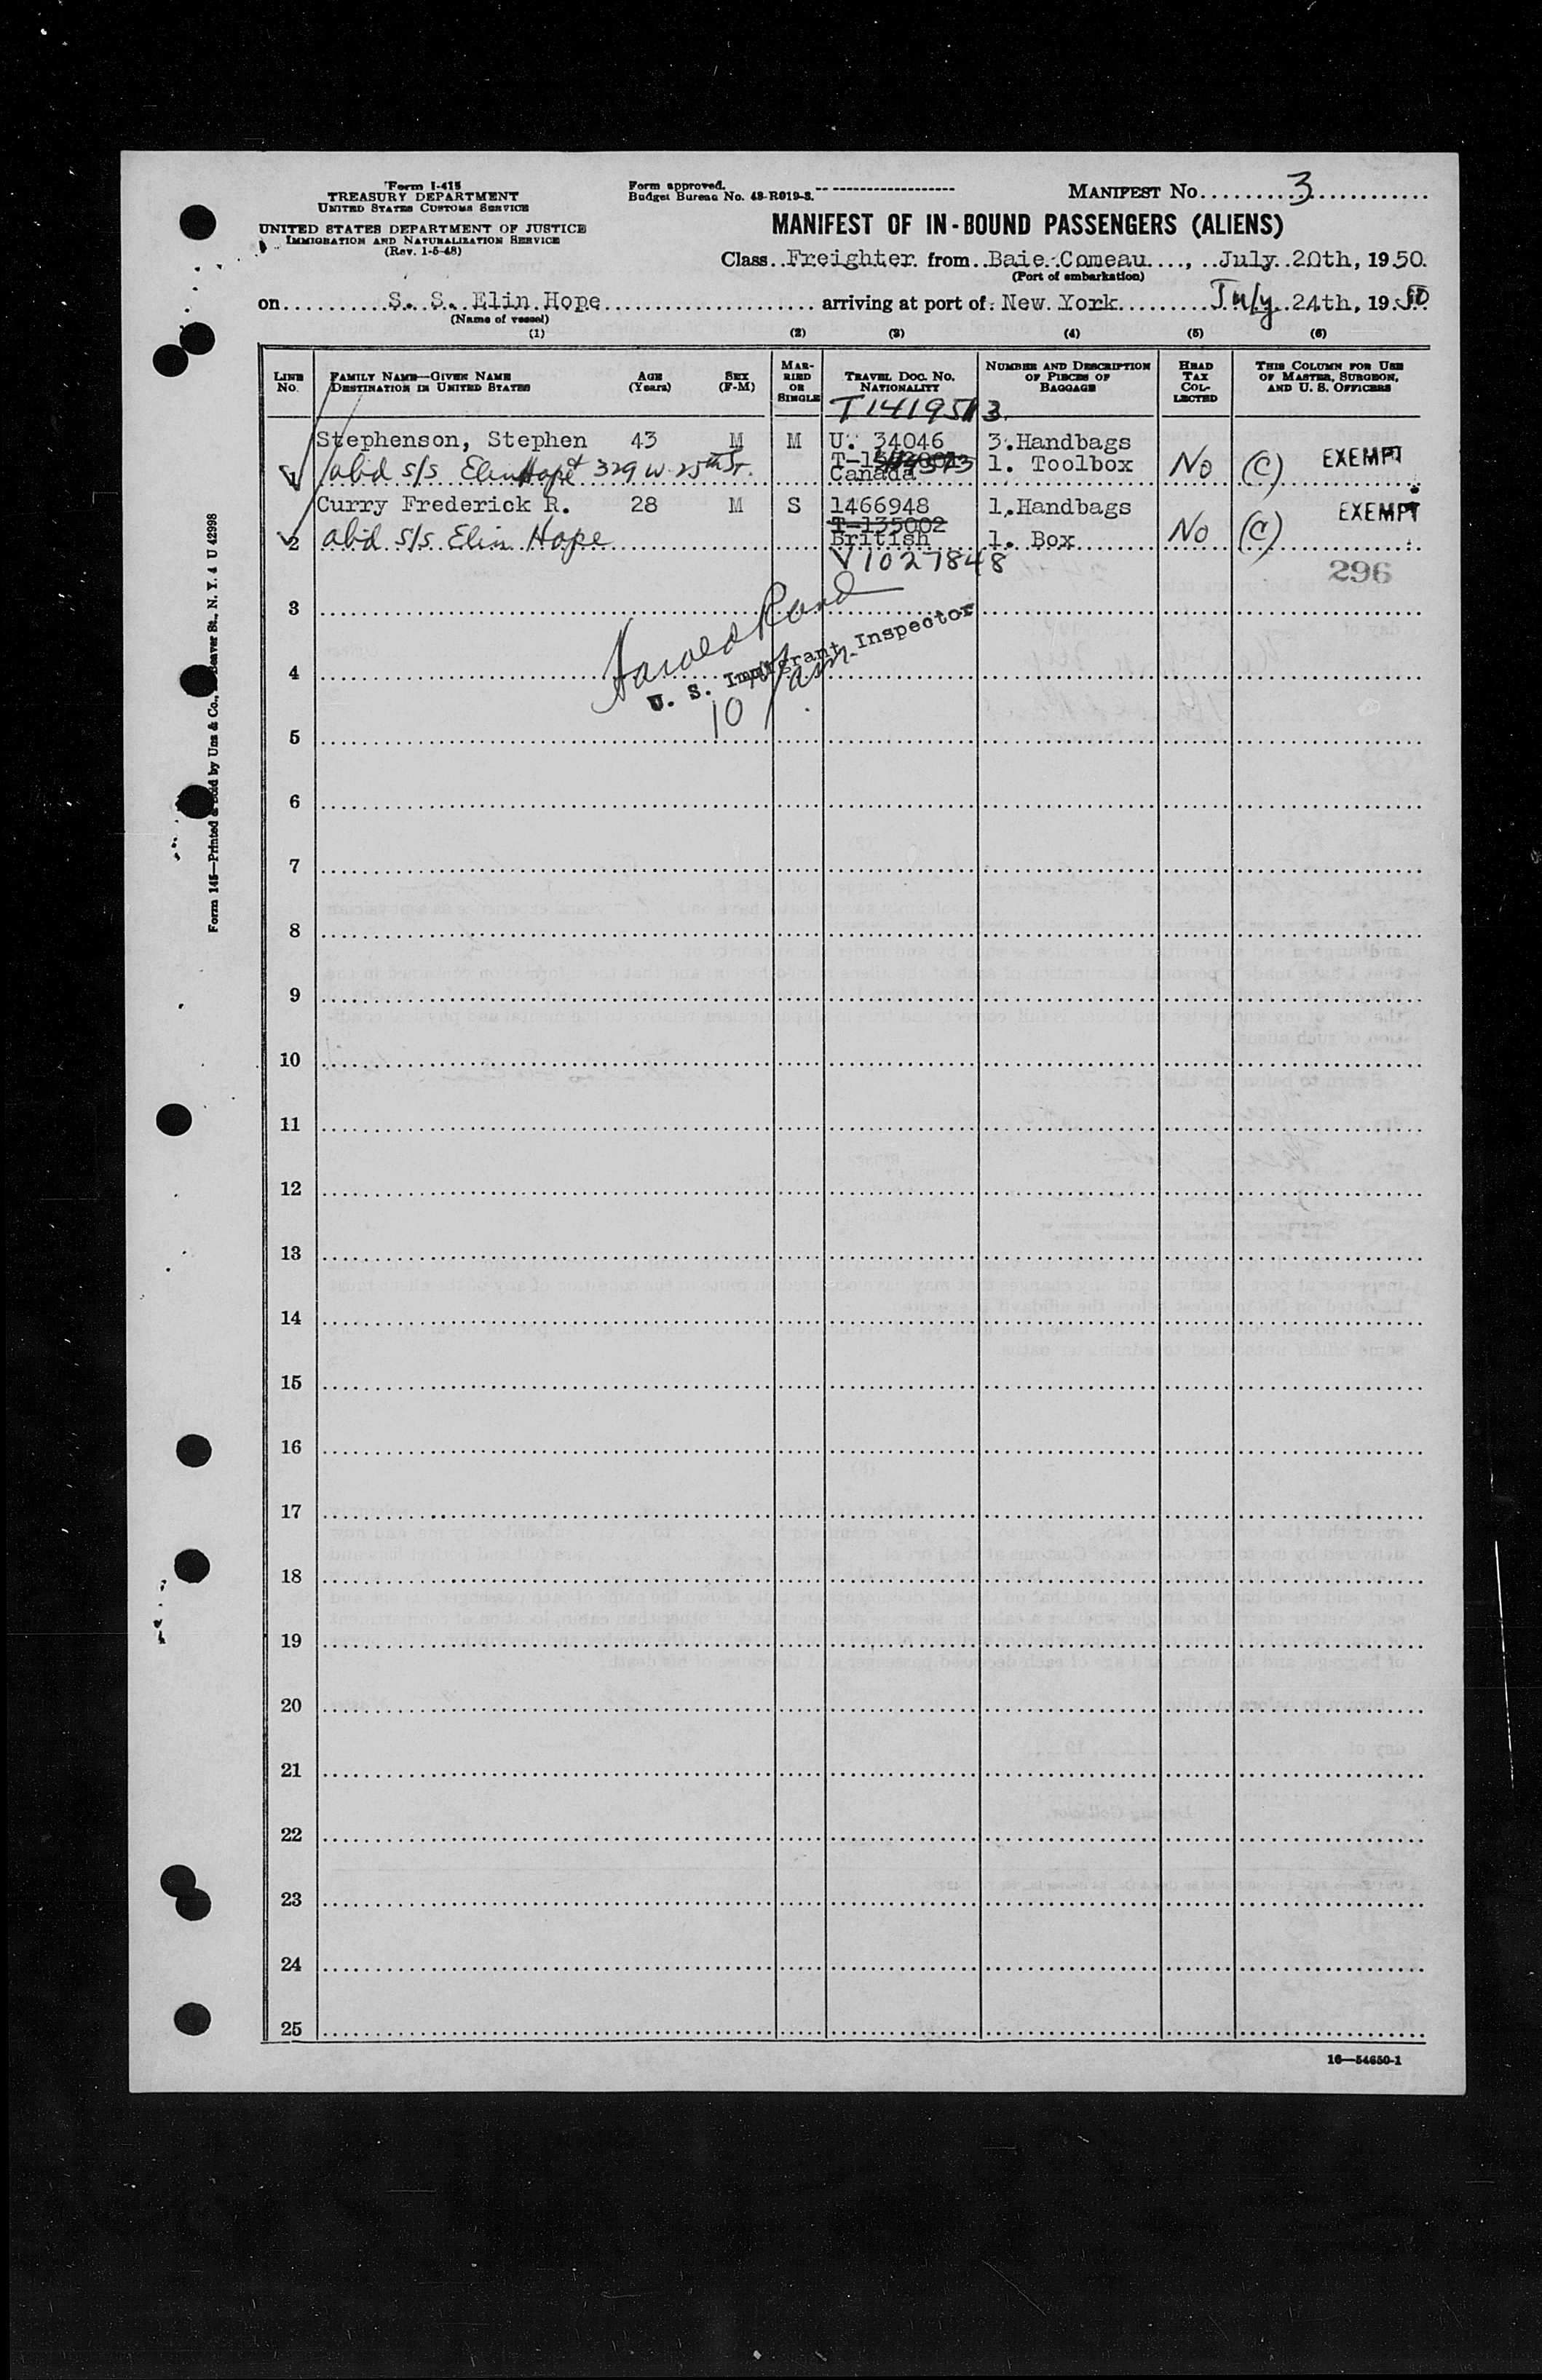 Form I-415
TREASURY DEPARTMENT
UNITED STATES CUSTOMS SERVICE
UNITED STATES DEPARTMENT OF JUSTICE
IMMIGRATION AND NATURALIZATION SERVICE
(Rev. 1-5-48)
Form approved.
Budget Bureau No. 43-R019-3.
MANIFEST No. 3
MANIFEST OF IN-BOUND PASSENGERS (ALIENS)
Class Freighter from Baie Comeau, July 20th, 1950.
(Port of embarkation)
on S. S. Elin Hope arriving at port of New York July 24th, 1950
(Name of vessel)
(1) (2) (3) (4) (5) (6)
LINE No. FAMILY NAME—GIVEN NAME DESTINATION IN UNITED STATES AGE (Years) SEX (F-M) MARRIED OR SINGLE TRAVEL DOC. NO. NATIONALITY NUMBER AND DESCRIPTION OF PIECES OF BAGGAGE HEAD TAX COLLECTED THIS COLUMN FOR USE OF MASTER, SURGEON, AND U. S. OFFICERS
T1419513
Stephenson, Stephen 43 M M U. 34046 3. Handbags
1 abd s/s Elin Hope 329 W 25th St. Canada 1. Toolbox No (C) EXEMPT
Curry Frederick R. 28 M S 1466948 1. Handbags EXEMPT
T-135002
2 abd s/s Elin Hope British 1. Box No (C)
V1027848
296
3
Harold Rand
U. S. Immigrant Inspector
4
10 am
5
6
7
8
9
10
11
12
13
14
15
16
17
18
19
20
21
22
23
24
25
16—54650-1
Form 145—Printed & Sold by Unz & Co., Beaver St., N. Y. 4 U 42998